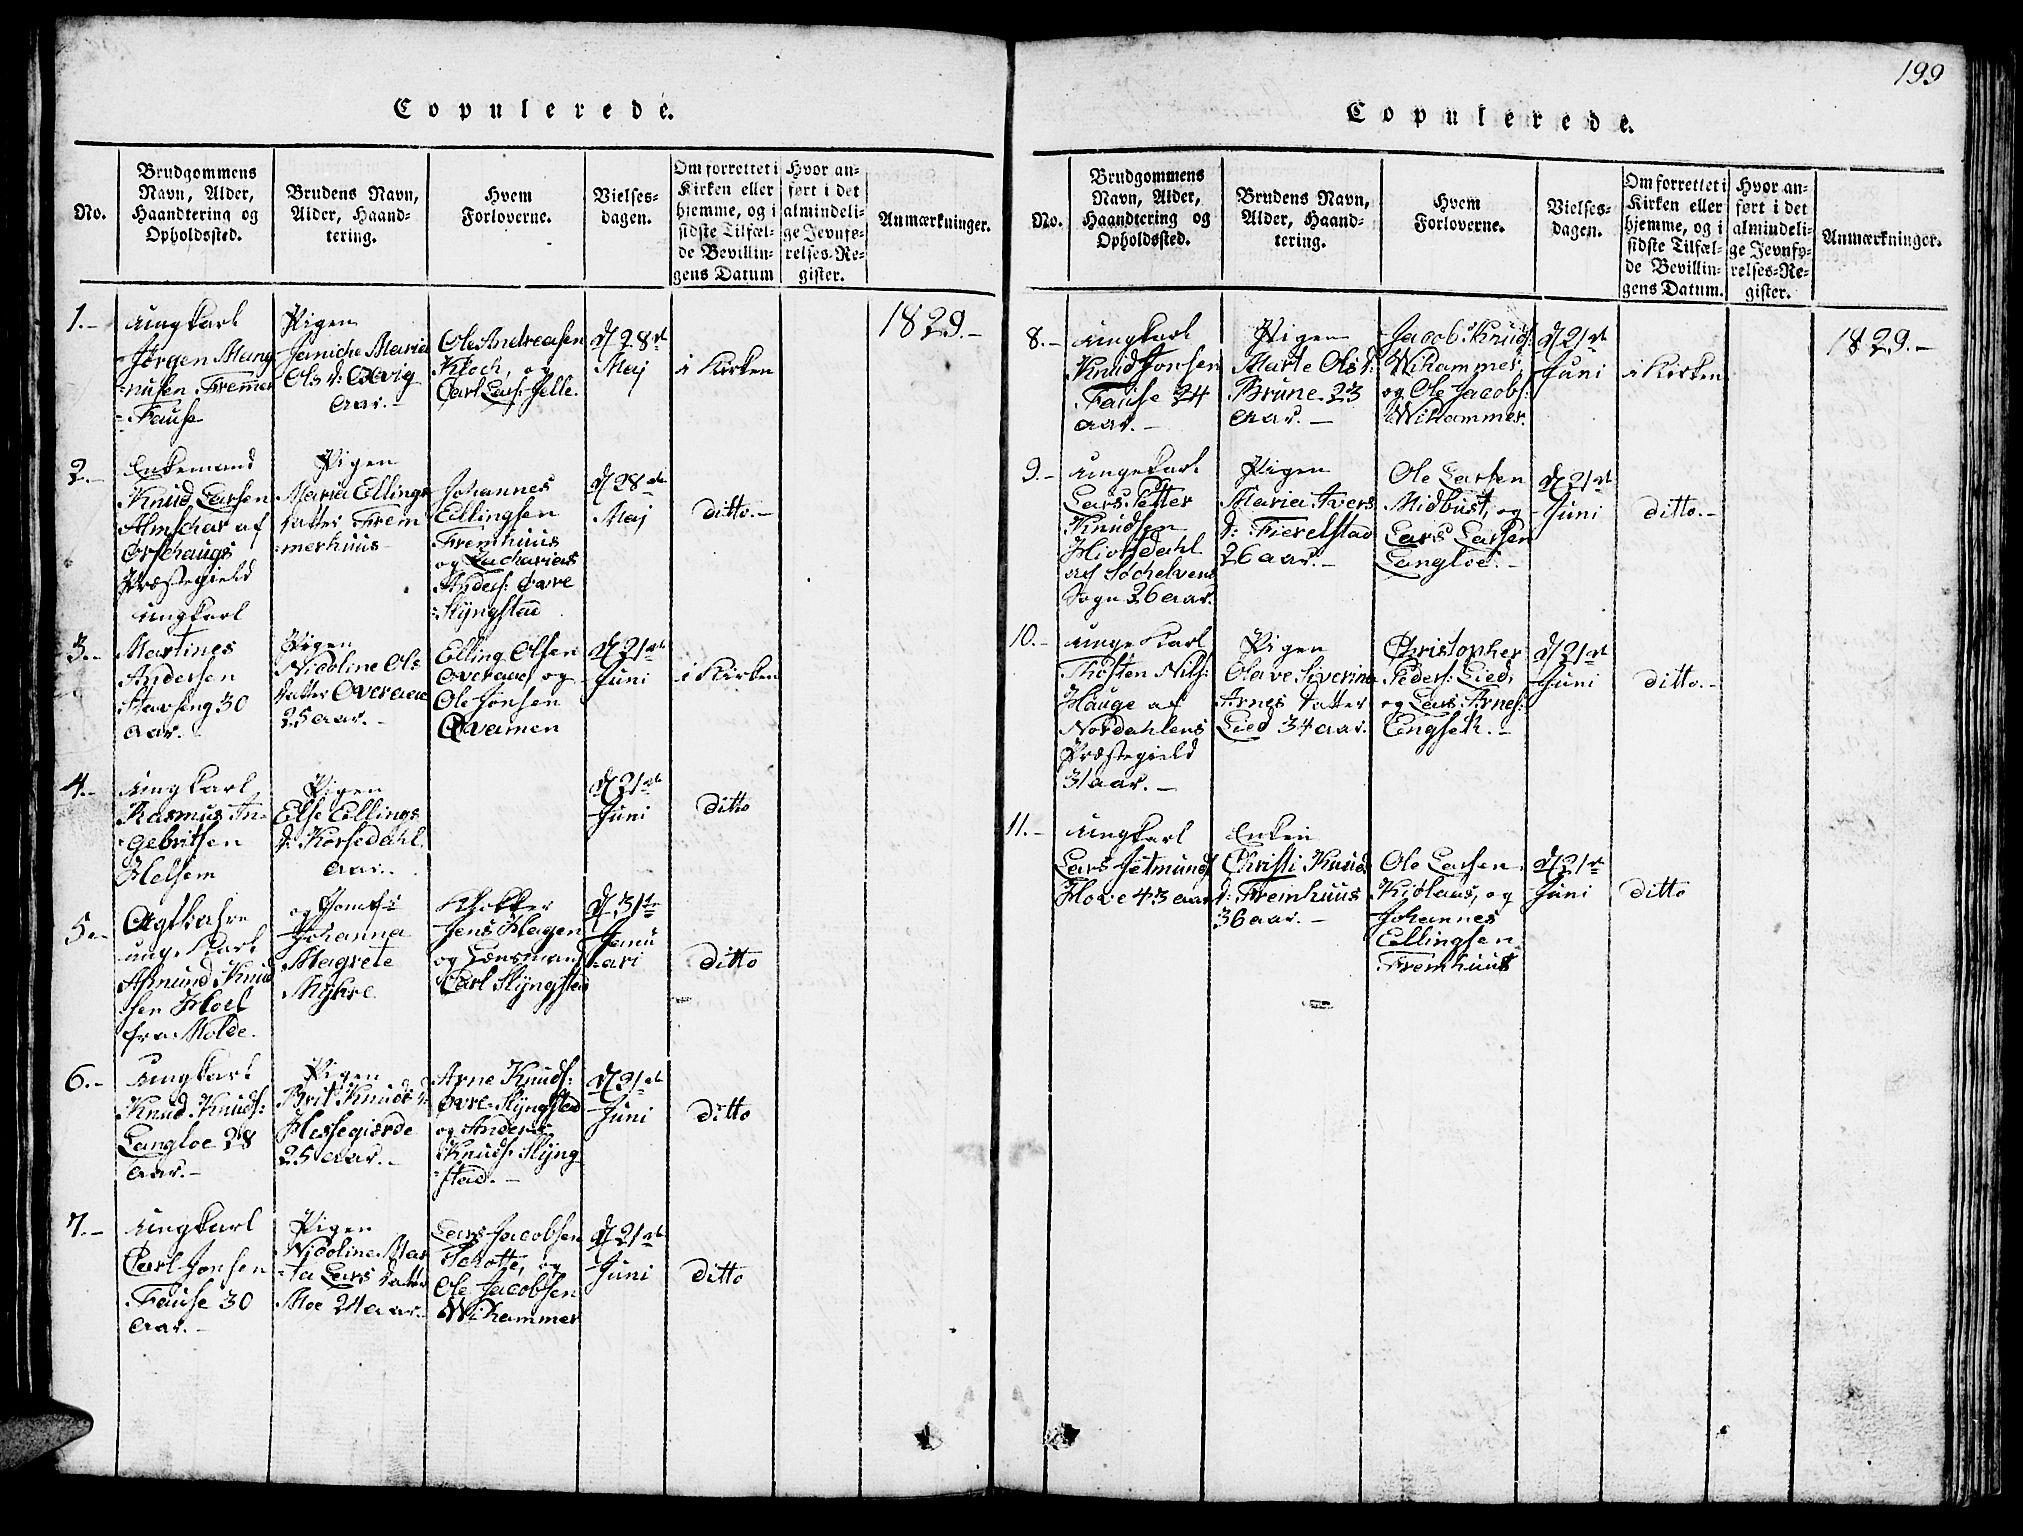 199
Copulerede.
No.
Brudgommens
Navn, Alder,
Haandtering og
Opholdssted.
Brudens Navn,
Alder, Haand-
tering.
Hvem
Forloverne.
Vielses-
dagen.
Om forrettet i
Kirken eller
hjemme, og i
sidste Tilfæl-
de Bevillin-
gens Datum
Hvor an-
ført i det
almindeli-
ge Jevnfø-
relses-Re-
gister.
Anmærkninger.
1829.-
1.-
Ungkarl
Jørgen Mang
nusen Fremmer
Fause
Pigen
Janiche Maria
Ols d:
Aar.-
Ole Andreasen
Kloch, og
Carl Lars: Gelle.
d 28de
Maj
i Kirken
2.-
Enkemand
Knud Larsen
af
Ørschaugs
Præstegield
Pigen
Maria Ellings
datter Frem
merhuus
Johannes
Ellingsen
Fremhuus
og Zacharias
Anders: Øvre
Slÿngstad
d 28de
Maj
ditto.-
3.-
Ungkarl
Martines
Andersen
Stavseng 30
Aar.-
Pigen
Nicoline Ols
datter Overaae
25 Aar.-
Elling Olsen
Overaae og
Ole Jonsen
Qvamen
d 21de
Juni
i Kirken
4.-
Ungkarl
Rasmus In-
gebritsen
Helsem
Pigen
Else Ellings
d: Korsedahl.
Aar.-
d 21de
Juni
ditto
5.-
Agtbahre
unge Karl
Asmund Knud
sen Hoel
fra Molde.
og Jomfr:
Johanna
Magrete
Mÿhre.
Klokker
Jens Hagen
og Lensmand
Carl Slÿngstad
d 31te
Janu
ari
ditto
6.-
Ungkarl
Knud Knuds:
Langloe 28
Aar.-
Pigen
Brit Knuds d:
Hessegierde
25 Aar.-
Arne Knuds:
Øvre Slÿngstad
og Anders
Knuds: Slÿng
stad.-
d 21de
Juni
ditto
7.-
Ungkarl
Carl Jonsen
Fause 30
Aar.-
Pigen
Nicoline Mar
ta Lars datter
Moe 24 Aar.-
Lars Jacobsen
og
Ole Jacobsen
Wihammer
d 21de
Juni
ditto
Copulerede.
No.
Brudgommens
Navn, Alder,
Haandtering og
Opholdssted.
Brudens Navn,
Alder, Haand-
tering.
Hvem
Forloverne.
Vielses-
dagen.
Om forrettet i
Kirken eller
hjemme, og i
sidste Tilfæl-
de Bevillin-
gens Datum.
Hvor an-
ført i det
almindeli-
ge Jevnfø-
relses-Re-
gister.
Anmærkninger.
1829.-
8.-
Ungkarl
Knud Jonsen
Fause 24
Aar.-
Pigen
Marte Ols d:
Brune 23
Aar.-
Jacob Knuds:
Wihammer,
og Ole Jacobs:
Wihammer.
d 21de
Juni
i Kirken
9.-
Unge Karl
Lars Petter
Knudsen
Hiorsdahl
af Søchelvens
Sogn 26 Aar.
Pigen
Maria Ivers
d: Fierelstad
26 Aar.-
Ole Larsen
Midbust, og
Lars Larsen
Langloe.-
d 21de
Juni
ditto.-
10.-
Unge Karl
Thosten Nils:
Hauge af
Nordahlens
Præstegield
31 Aar.-
Pigen
Olave Siverina
Arnes datter
Lied 34 Aar.
Christopher
Peders: Lied,
og Lars Arnes:
Engseth.-
d 21de
Juni
ditto.-
11.-
Ungkarl
Lars Jetmunds
Hove 43 Aar
Enken
Christi Knuds
d: Fremhuus
36 Aar.-
Ole Larsen
Kiølaas, og
Johannes
Ellingsen
Fremhuus
d 21de
Juni
ditto